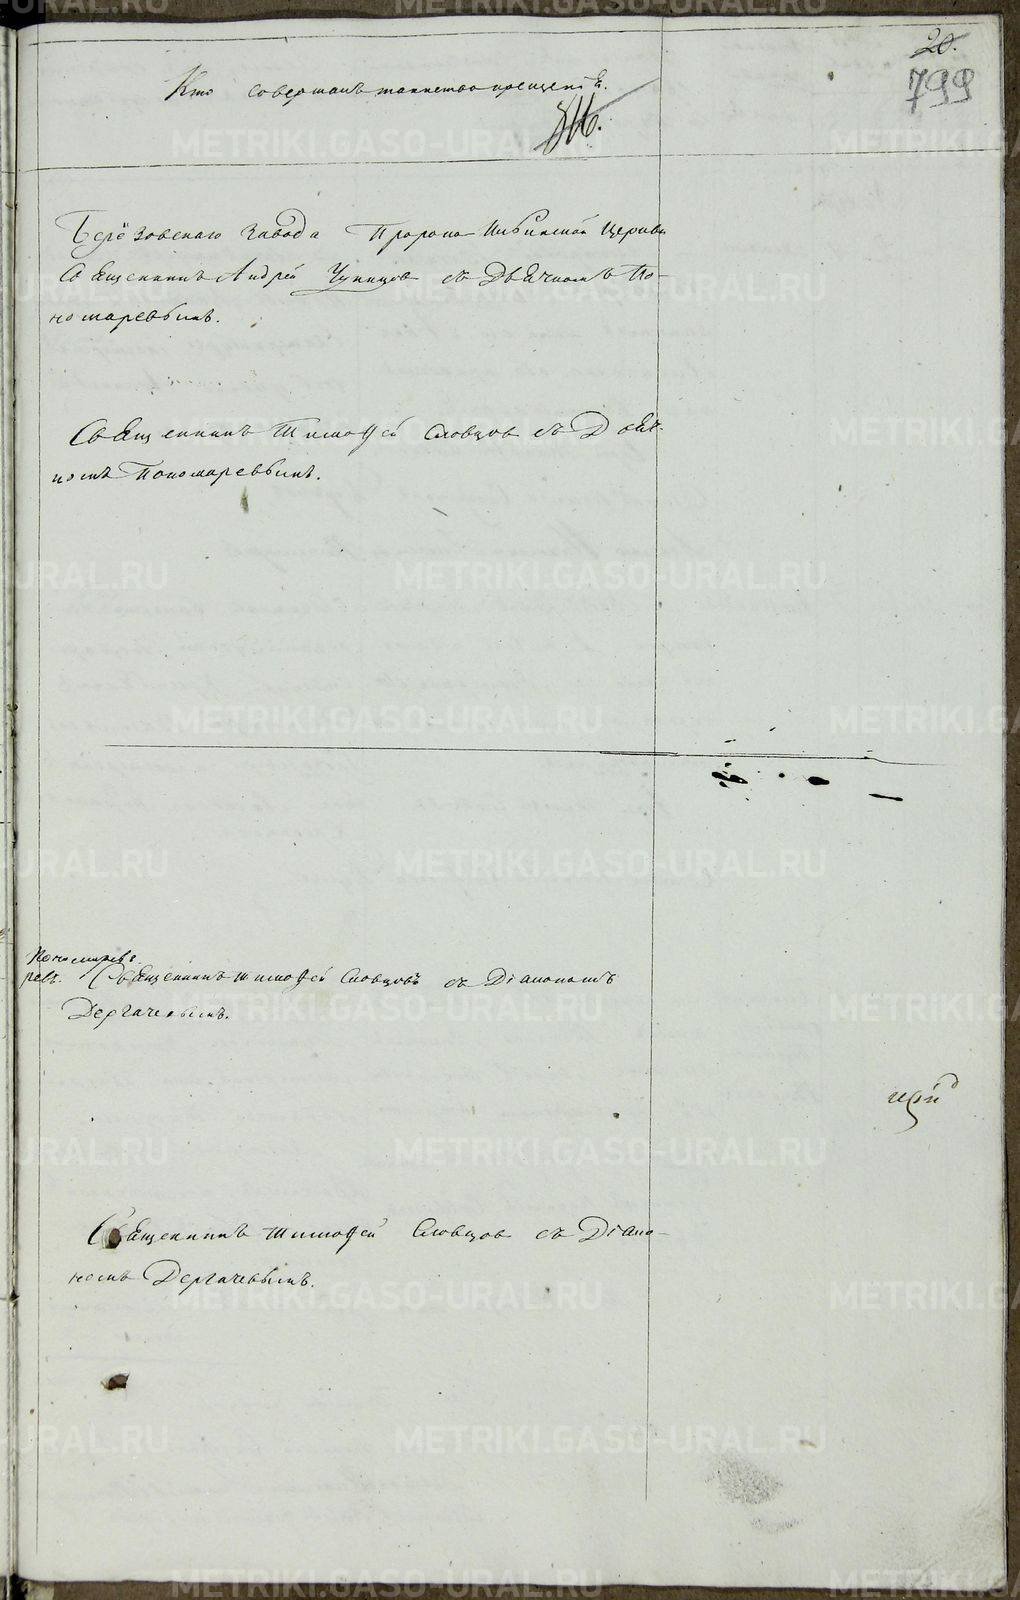 20.
799
Кто совершалъ таинство крещенiѣ.
Берёзовскаго завода Пророко Ильинской Церкви
Священникъ Андрей Чупинцов съ Дьячкомъ По-
номаревымъ.
Священникъ Тимоѳей Словцов съ Дьяч-
комъ Пономаревымъ.
Священникъ Тимоѳей Словцовъ съ Дiакономъ
Дергачевымъ.
Священникъ Тимоѳей Словцов съ Дiако-
номъ Дергачевымъ.
METRIKI.GASO-URAL.RU